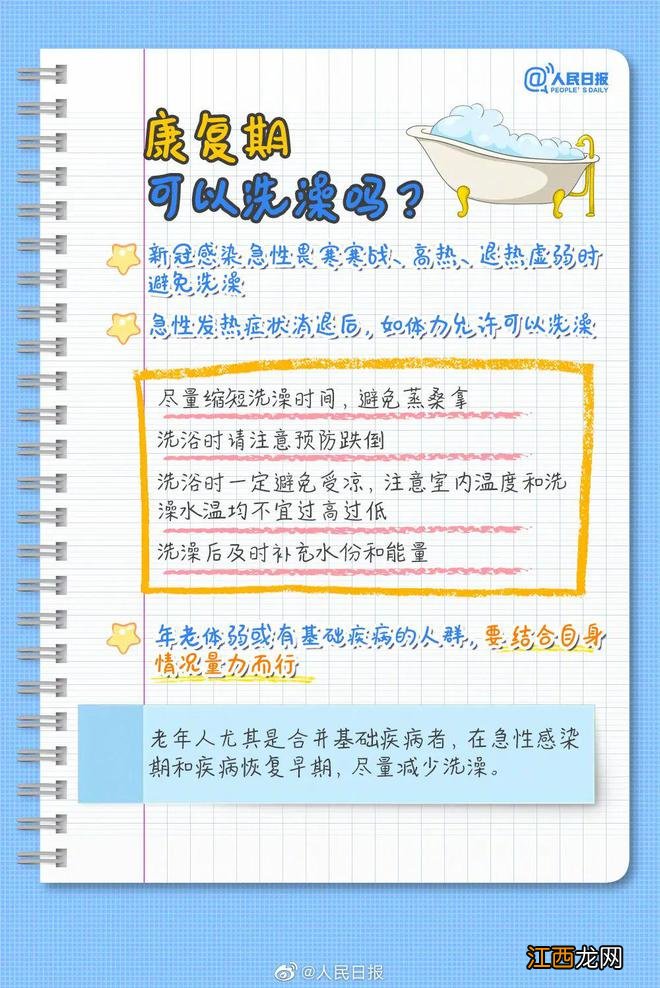 @人民日报
PEOPLE'S DAILY
康复期
可以洗澡吗？
新冠感染急性畏寒寒战、高热、退热虚弱时
避免洗澡
急性发热症状消退后，如体力允许可以洗澡
尽量缩短洗澡时间，避免蒸桑拿
洗浴时请注意预防跌倒
洗浴时一定避免受凉，注意室内温度和洗
澡水温均不宜过高过低
洗澡后及时补充水份和能量
年老体弱或有基础疾病的人群，要结合自身
情况量力而行
老年人尤其是合并基础疾病者，在急性感染
期和疾病恢复早期，尽量减少洗澡。
@人民日报
江西龙网